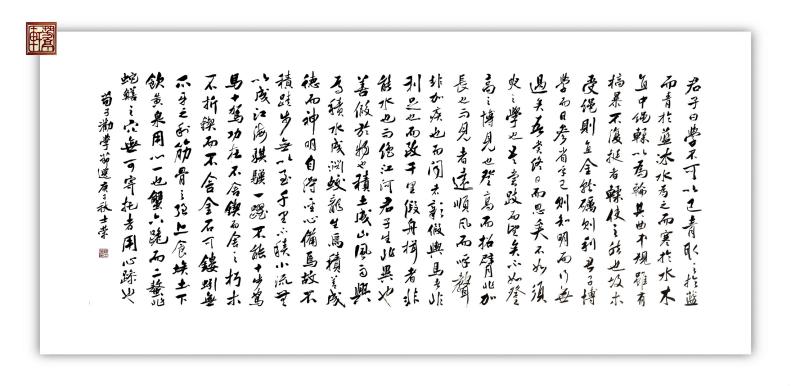 君子曰學不可以已青取之於藍
而青於藍冰水為之而寒於水木
直中繩輮以為輪其曲中規雖有
槁暴不復挺者輮使之然也故木
受繩則直金就礪則利君子博
學而日參省乎己則知明而行無
過矣吾嘗終日而思矣不如須
臾之學也吾嘗跂而望矣不如登
高之博見也登高而招臂非加
長也而見者遠順風而呼聲
非加疾也而聞者彰假輿馬者非
利足也而致千里假舟楫者非
能水也而絕江河君子生非異也
善假於物也積土成山風雨興
焉積水成淵蛟龍生焉積善成
德而神明自得聖心備焉故不
積跬步無以至千里不積小流無
以成江海騏驥一躍不能十步駑
馬十駕功在不舍鍥而舍之朽木
不折鍥而不舍金石可鏤蚓無
爪牙之利筋骨之強上食埃土下
飲黃泉用心一也蟹六跪而二螯非
蛇鱔之穴無可寄托者用心躁也
荀子勸學節選庚子秋士榮